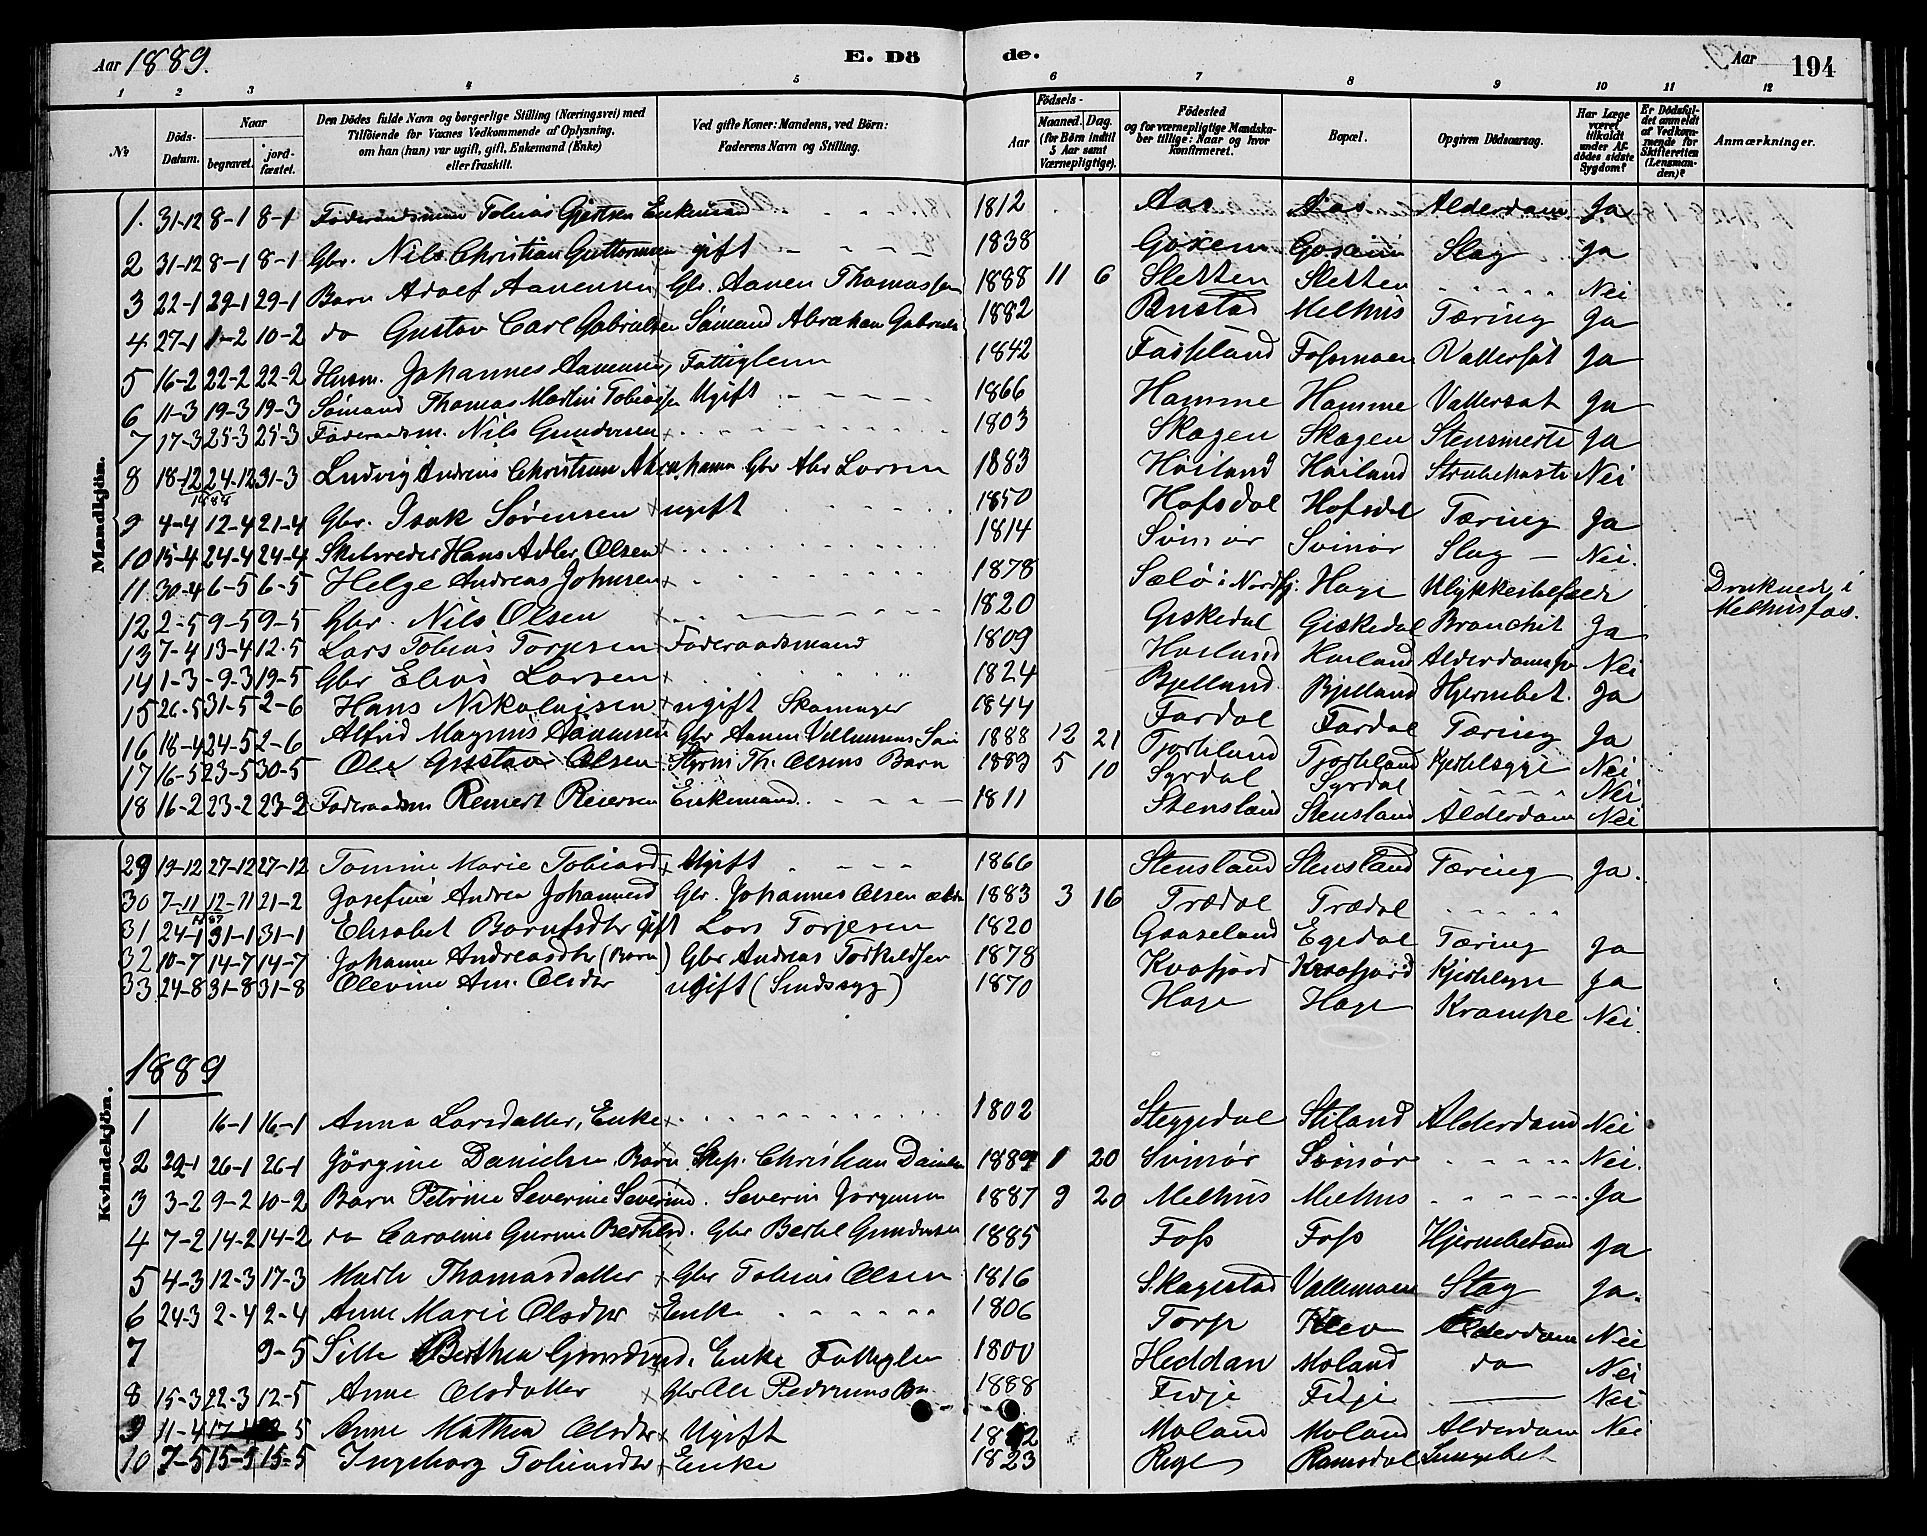 Aar 1889. E. Dö de. Aar 194
1 2 3 4 5 6 7 8 9 10 11 12
No Döds-Datum. Naar begravet. jordfæstet. Den Dödes fulde Navn og borgerlige Stilling (Næringsvei) med Tilföiende for Voxnes Vedkommende af Oplysning, om han (hun) var ugift, gift, Enkemand (Enke) eller fraskilt. Ved gifte Koner: Mandens, ved Börn: Faderens Navn og Stilling. Födsels- Aar Maaned. Dag. (for Börn indtil 5 Aar samt Værnepligtige). Födested og for værnepligtige Mandskaber tillige: Naar og hvor konfirmeret. Bopæl. Opgiven Dödsaarsag. Har Læge været tilkaldt under Afdödes sidste Sygdom? Er Dödsfaldet anmeldt af Vedkommende for Skifteretten (Lensmanden)? Anmærkninger.
Mandkjön.
1. 31-12 8-1 8-1 Föderaadsman Tobias Gjertsen Enkemand 1812 Aas Aas Alderdom Ja
2 31-12 8-1 8-1 Gbr. Nils Christian Guttormsen gift 1838 Goxem Goxem Slag Ja
3 22-1 29-1 29-1 Barn Adolf Aanensen Gbr. Aanen Thomassen 1888 11 6 Sletten Sletten Nei
4 27-1 1-2 10-2 do Gustav Carl Gabrielsen Sömand Abraham Gabriels 1882 Bustad Melhus Tæring Ja
5 16-2 22-2 22-2 Husm. Johannes Aanensen, Fattiglem 1842 Fassland Fossmoen Vattersot Ja
6 11-3 19-3 19-3 Sömand Thomas Martin Tobiassen Ugift 1866 Hamme Hamme Vattersot Ja
7 17-3 25-3 25-3 Föderaadsm. Nils Gundersen 1803 Skagen Skagen Stensmerte Ja
8 18-12 24-12 31-3 Ludvig Andreas Christian Abrahams. Gbr Abr Larsen 1883 Höiland Höiland Strubehoste Nei
1888
9 4-4 12-4 21-4 Gbr. Isak Sörensen ugift 1850 Hofsdal Hofsdal Tæring Ja
10 15-4 24-4 24-4 Skibsreder Hans Adler Olsen 1814 Svinör Svinör Slag - Nei.
11 30-4 6-5 6-5 Helge Andreas Johnsen 1878 Sælö i Nordfj. Hage Ulykkestilfælde Druknede i Melhusfos.
12 2-5 9-5 9-5 Gbr. Nils Olsen 1820 Giskedal Giskedal Bronchit Ja
13 7-4 13-4 12-5 Lars Tobias Torjesen Föderaadsmand 1809 Höiland Höiland Alderdomssv Nei
14 1-3 9-3 19-5 Gbr Elias Larsen 1824 Bjelland Bjelland Hjernebet. Ja
15 26-5 31-5 2-6 Hans Nikolaisen ugift Skomager 1844 Fardal Fardal Tæring Ja
16 18-4 24-5 2-6 Alfrid Magnus Aanensen Gbr Aanen Villumsens Sön 1888 12 21 Tjorteland Tjorteland Kjertelsyge Nei
17 16-5 23-5 30-5 Ole Gustav Olsen Styrm Th. Olsens Barn 1889 5 10 Syrdal Syrdal Nei
18 16-2 23-2 23-2 Föderaadsm Reinert Reiersen Enkemand 1811 Stensland Stensland Alderdom Nei
29 19-12 27-12 27-12 Tomine Marie Tobiasd Ugift 1866 Stensland Stensland Tæring Ja.
30 7-11 12-11 21-2 Josefine Andrea Johannesd Gbr. Johannes Olsen 1883 3 16 Trædal Trædal
31 24-1 31-1 31-1 Elisabet Barnfsdtr gift Lars Torjesen 1820 Gaaseland Egedal Tæring Ja
32 10-7 14-7 14-7 Johanne Andreasdtr (Barn) Gbr Andreas Torkeldsen 1878 Kvafjord Kvafjord Kjertelsyge Ja
33 24-8 31-8 31-8 Olevine Am. Olsdtr ugift (Sindssyg) 1870 Hage Hage Krampe Nei.
1889
Kvindekjön.
1 16-1 16-1 Anna Larsdatter, Enke 1802 Steggedal Stiland Alderdom Nei
2 22-1 26-1 26-1 Jörgine Danielsen Barn Skip. Christian Daniels 1889 1 20 Svinör Svinör Nei.
3 3-2 9-2 10-2 Barn Petrine Severine Severind. Severin Jörgensen 1887 9 20 Melhus Melhus Ja
4 7-2 14-2 14-2 do Caroline Gurine Bertelsd. Gbr Bertel Gundersen 1885 Foss Foss Hjernebetænd Ja
5 4-3 12-3 17-3 Marte Thomasdatter Gbr Tobias Olsen 1816 Skagestad Vallemoen Slag Ja.
6 24-3 2-4 2-4 Anne Marie Olsdtr Enke 1806 Torp Klev Alderdom Nei
7 9-5 Sille Berthea Gundersd. Enke Fattiglem 1800 Heddan Moland do Nei
8 15-3 22-3 12-5 Anne Olsdatter Gbr Ole Pedersens Bn 1888 Fidje Fidje Nei
9 11-4 17-4 5 Anne Mathea Olsdtr Ugift Moland Moland Alderdom Nei
10 7-5 15-5 15-5 Ingeborg Tobiasdtr Enke 1823 Rege Ramsdal Lungebet